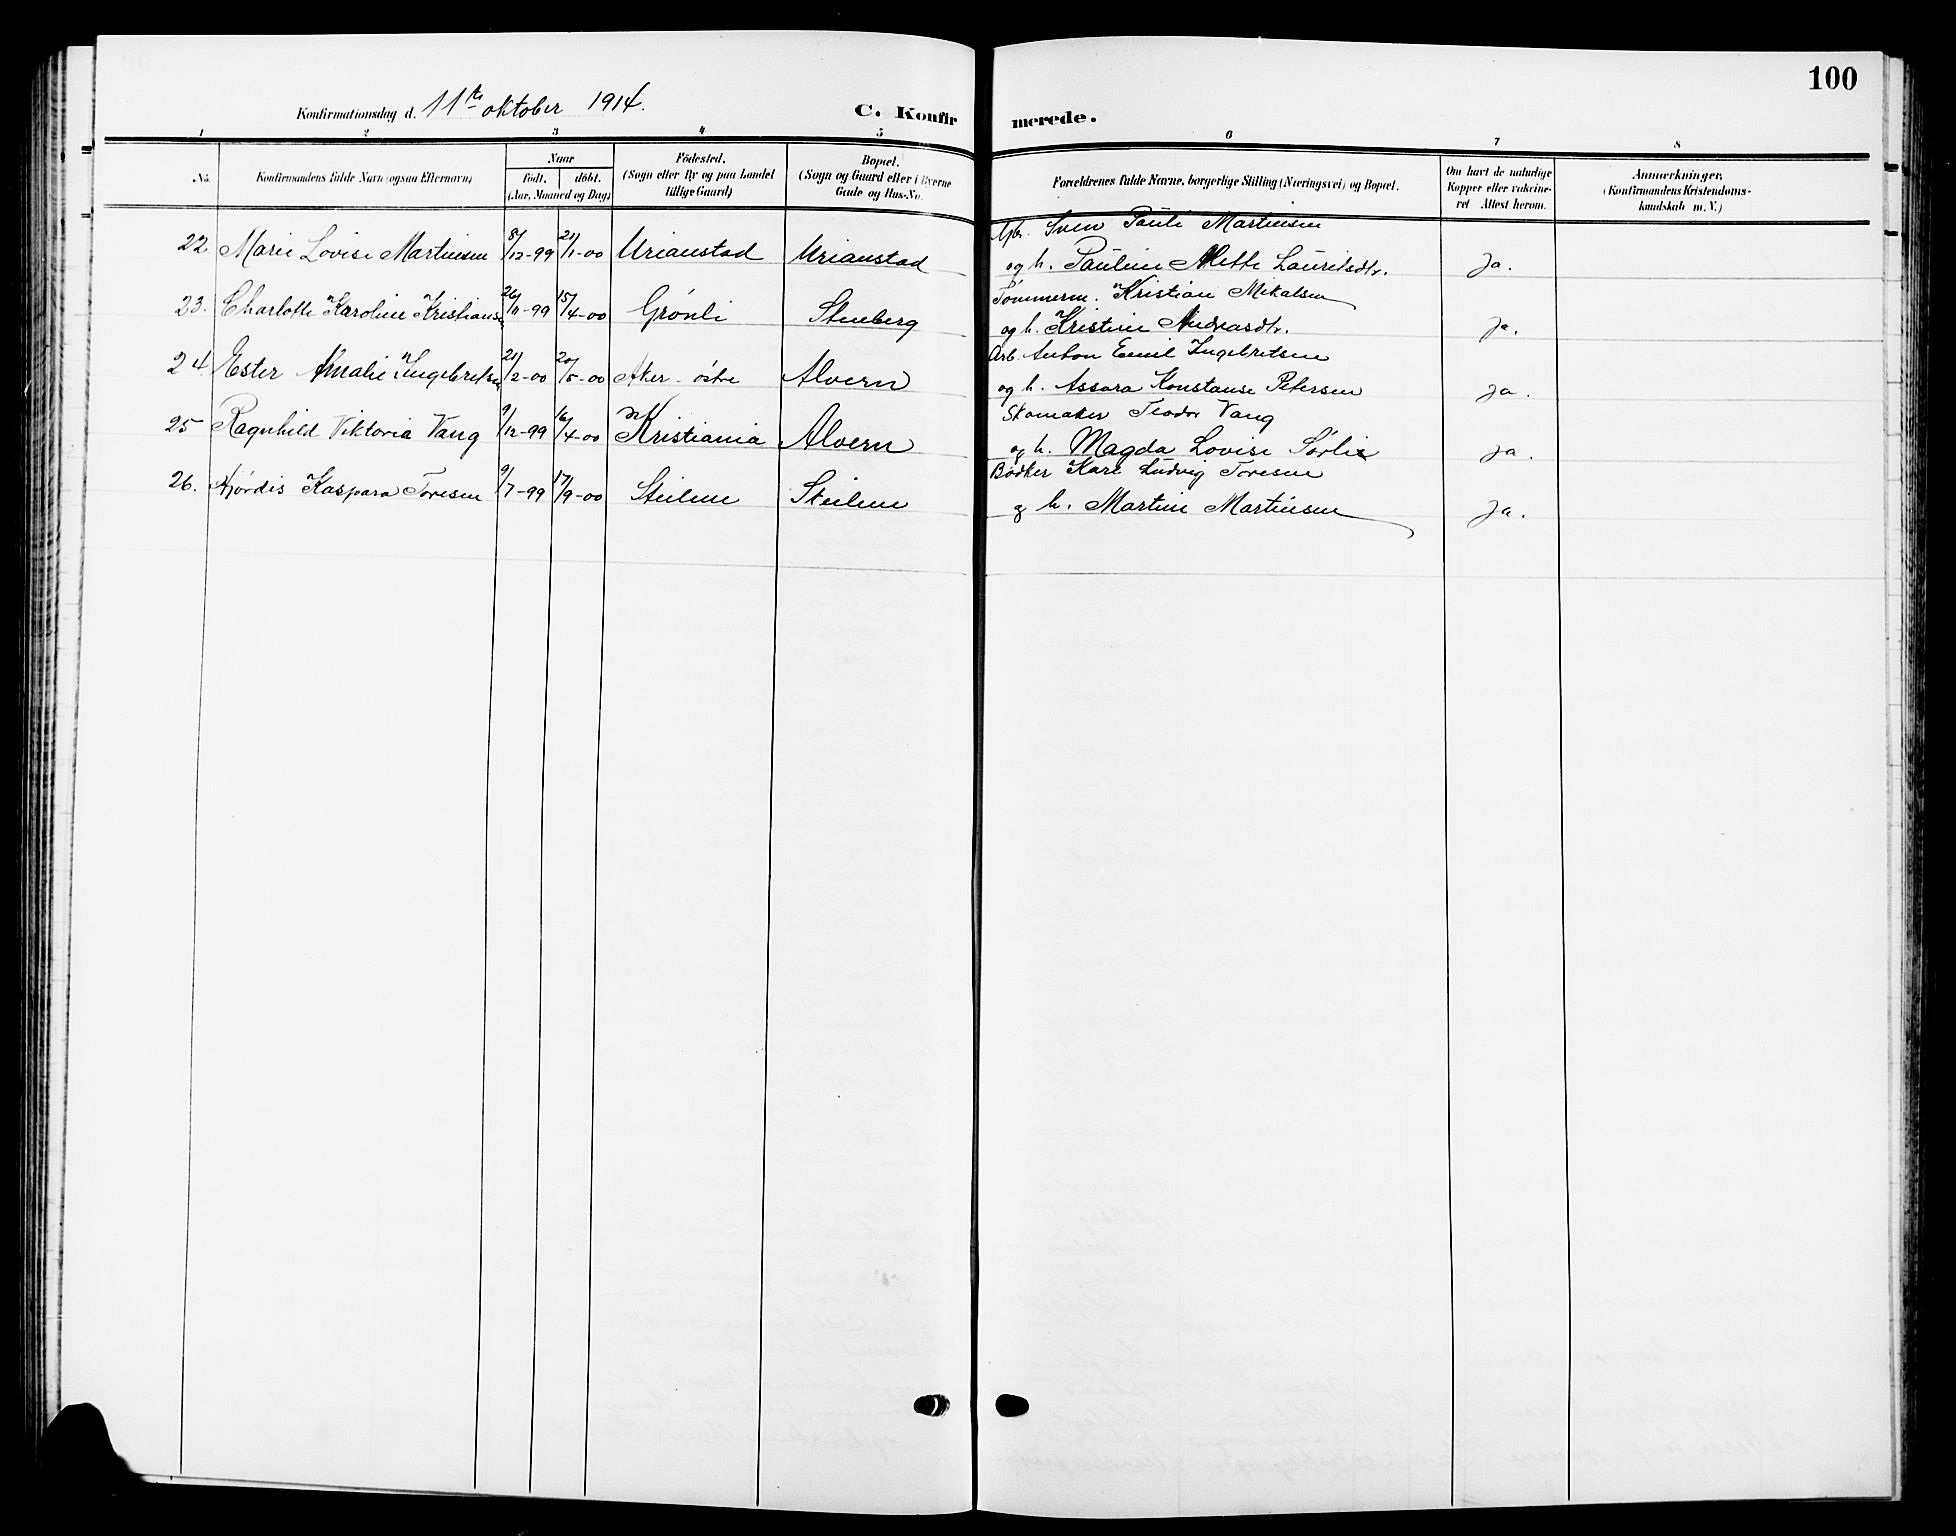 100
Konfirmationsdag d. 11te oktober 1914.
C. Konfirmerede.
1 2 3 4 5 6 7 8
No. Konfirmandens fulde Navn (ogsaa Efternavn)
Naar
födt. döbt.
(Aar, Maaned og Dag)
Födested.
(Sogn eller By og paa Landet
tillige Gaard)
Bopæl.
(Sogn og Gaard eller i Byerne
Gade og Hus-No.
Forældrenes fulde Navne, borgerlige Stilling (Næringsvei) og Bopæl.
Om havt de naturlige
Kopper eller vakcine-
ret Attest herom.
Anmærkninger,
(Konfirmandens Kristendoms-
kundskab m. V.)
Sven Pauli Martinsen
22 Marie Lovise Martinsen 8/12-99 21/1-00 Urianstad Urianstad og h. Pauline Mette Lauritsdtr. Ja.
Tømmerm. Kristian Mikalsen
23. Charlotte Karoline Kristiansen 26/11-99 15/4-00 Grönli Stenberg og h. Kristine Andreasdtr. Ja.
Arb. Anton Emil Ingebretsen
24 Ester Amalie Ingebretsen 21/2-00 20/5-00 Aker östre Alvern og h. Assora Konstanse Petersen Ja.
Skomaker Teodor Vang
25 Ragnhild Viktoria Vang 9/12-99 16/4-00 Kristiania Alvern og h. Magda Lovise Sörlie Ja.
Bödker Karl Ludvig Toresen
26. Hjördis Kaspara Toresen 9/7-99 17/9-00 Steilene Steilene og h. Martine Martinsen Ja.